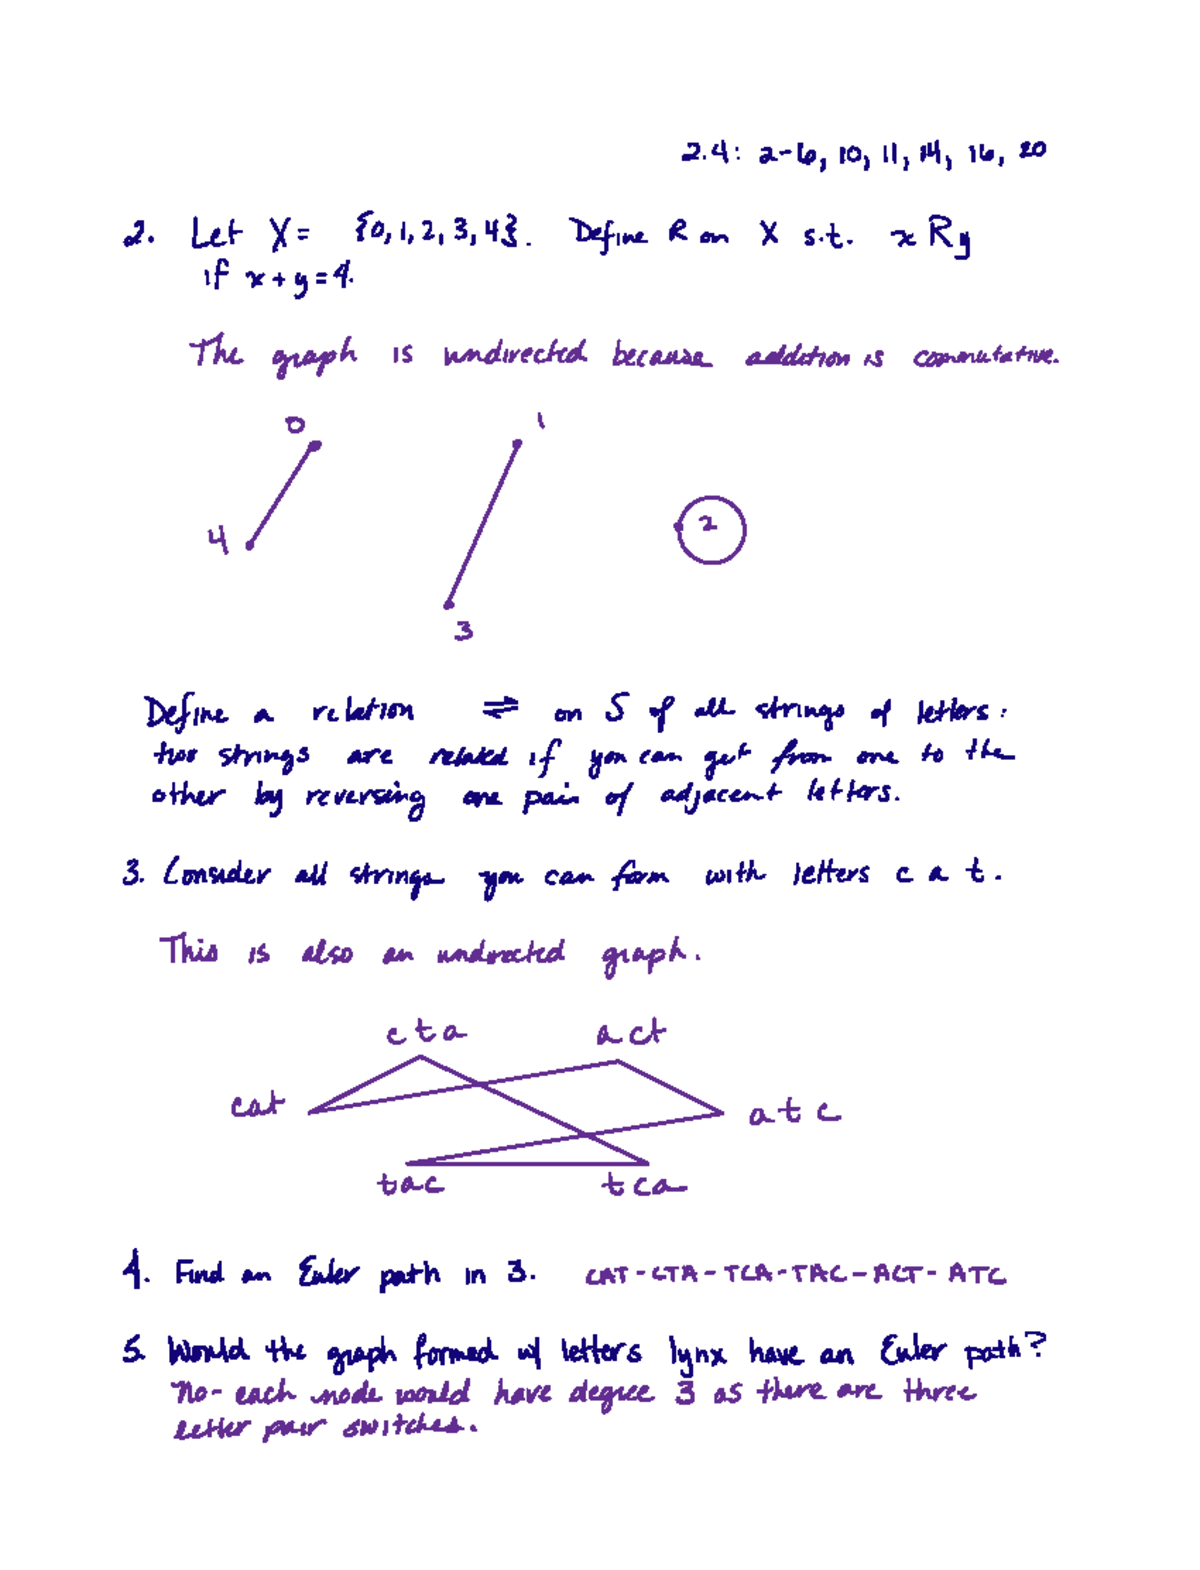 2.4: 2-6, 10, 11, 14, 16, 20
2. Let X = {0, 1, 2, 3, 4}. Define R on X s.t. x R y
if x + y = 4.
The graph is undirected because addition is commutative.
0
1
4
2
3
Define a relation ⇌ on S of all strings of letters:
two strings are related if you can get from one to the
other by reversing one pair of adjacent letters.
3. Consider all strings you can form with letters c a t.
This is also an undirected graph.
cta act
cat
atc
tac tca
4. Find an Euler path in 3. CAT - CTA - TCA - TAC - ACT - ATC
5. Would the graph formed w/ letters lynx have an Euler path?
No - each node would have degree 3 as there are three
letter pair switches.